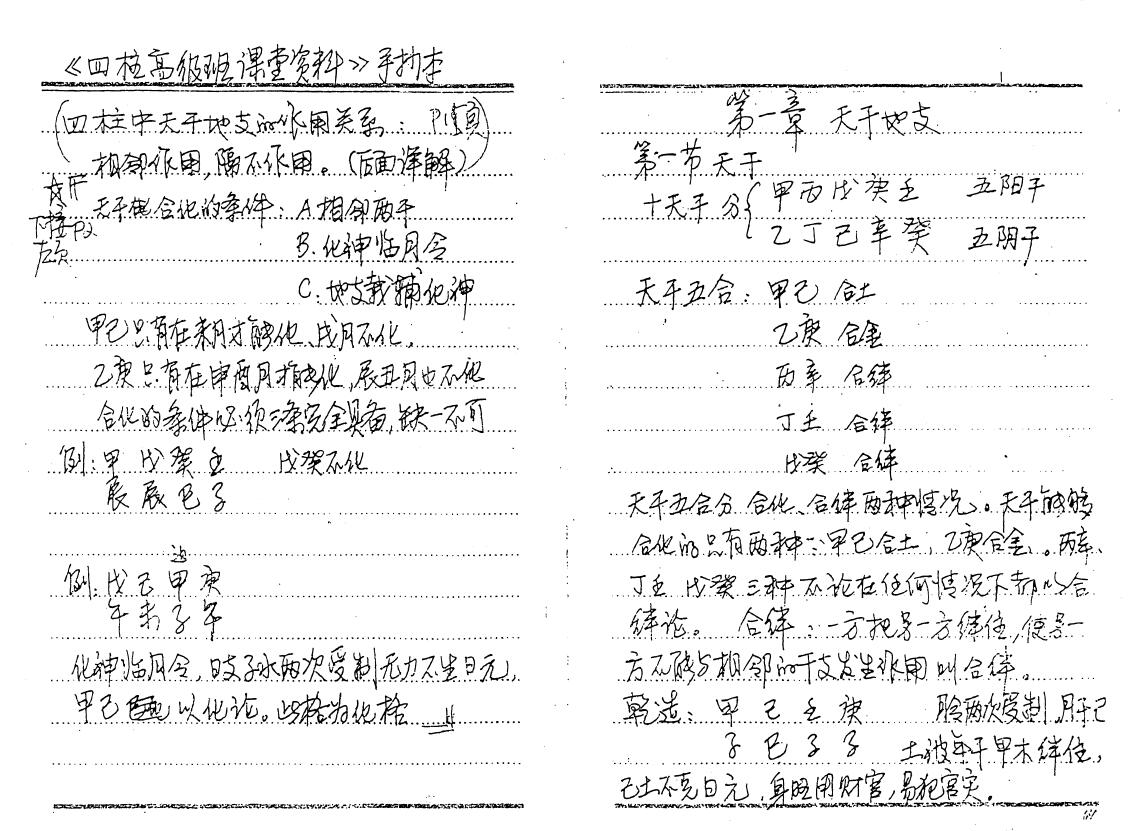 《四柱高级班课堂资料》手抄本
(四柱中天干地支的作用关系: P1填页)
相邻作用,隔不作用。(后面详解)
天干相合化的条件: A相邻两干
下接P2
左页
B. 化神临月令
C: 地支栽辅化神
甲己只有在未月才能化、戌月不化。
乙庚只有在申酉月才能化,辰丑月也不化
合化的条件必须三条完全具备,缺一不可
例: 甲 戊 癸 壬 戊癸不化
辰 辰 巳 子
边
例: 戊 己 甲 庚
午 未 子 午
化神临月令,日支子水两次受制无力不生日元,
甲己 以化论。此格为化格
第一章 天干地支
第一节 天干
十天干分 甲 丙 戊 庚 壬 五阳干
乙 丁 己 辛 癸 五阴干
天干五合: 甲己 合土
乙庚 合金
丙辛 合绊
丁壬 合绊
戊癸 合绊
天干五合分 合化、合绊两种情况。天干能够
合化的只有两种: 甲己合土,乙庚合金。丙辛、
丁壬 戊癸三种不论在任何情况下都以合
绊论。 合绊: 一方把另一方绊住,使另一
方不能与相邻的干支发生作用叫合绊。
乾造: 甲 己 壬 庚 月令两次受制.月干己
子 巳 子 子 土被年干甲木绊住,
己土不克日元,身旺用财官,易犯官灾。